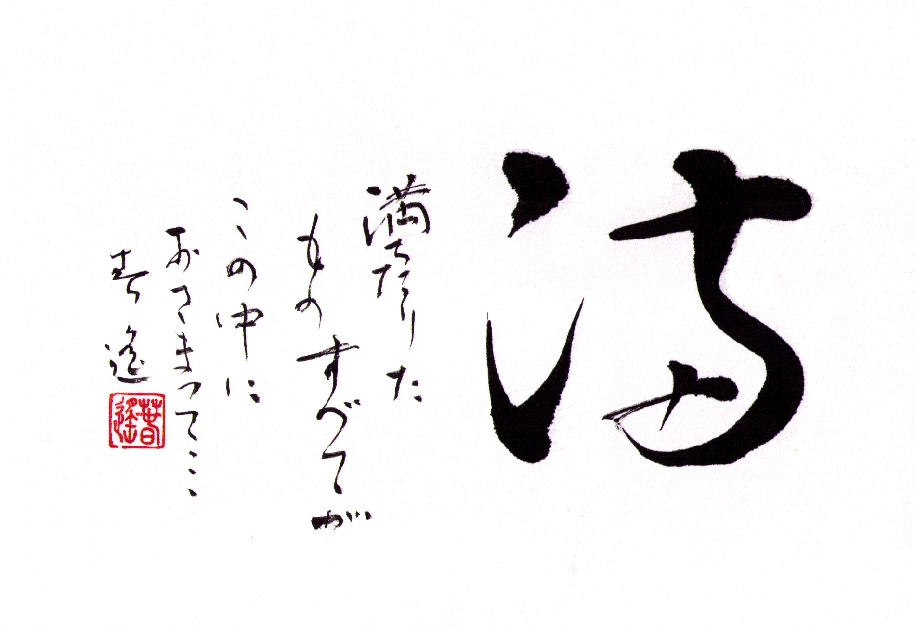 満
満ちたりた
ものすべてが
この中に
おさまって…
春遥
春遥